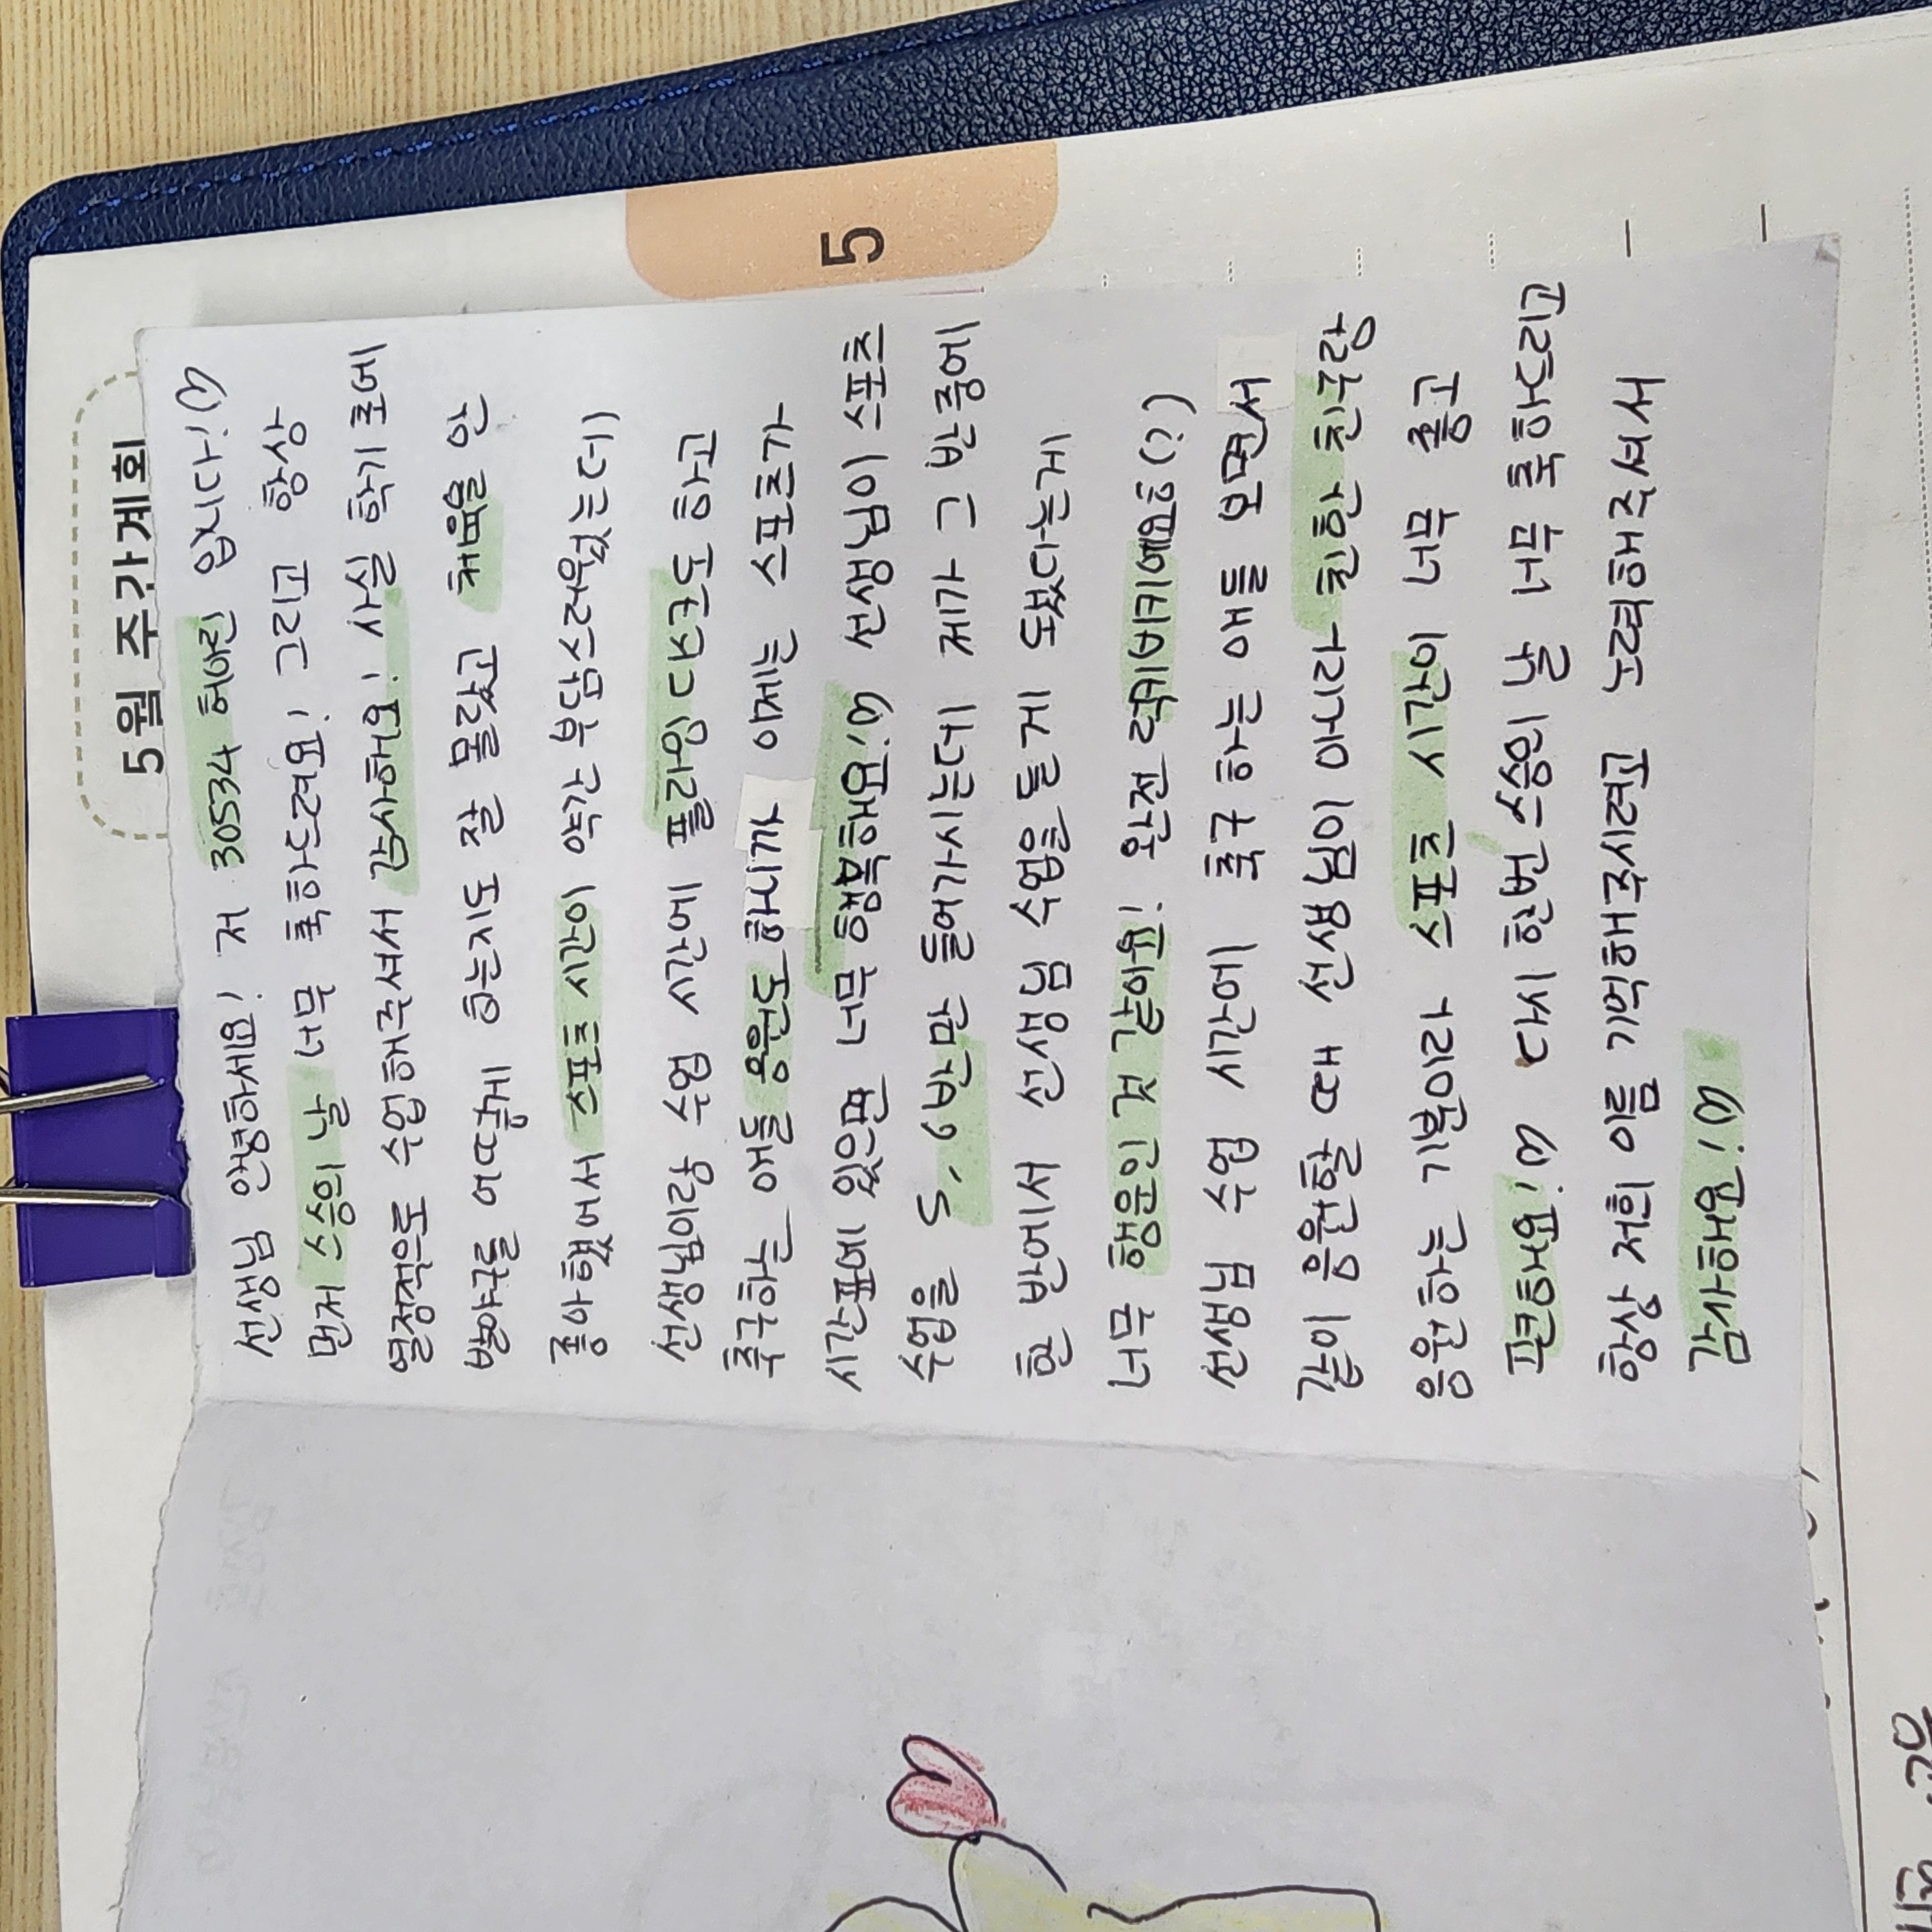 5월 주간계획
5
선생님 안녕하세요! 저 30534 허아린 입니다!♡
먼저 스승의 날 너무 축하드려요! 그리고 항상
열정적으로 수업해주셔서 감사해요! 사실 학기 초에
발야구를 어떻게 하는지도 잘 몰랐고 체육을 안
좋아했에서 스포츠 시간이 약간 부담스러웠는데
선생님이랑 수업 시간에 플라잉디스크도 하고
축구하는 애들 응원도 하니까 이제는 스포츠가
시간표에 있으면 너무 행복해요!♡ 선생님이 스포츠
수업을 5, 6반만 들어가시는데 제가 그 반 중에
한 반에서 선생님 수업을 듣게 됐다는게
너무 행운인 것 같아요! 완전 럭키비키에요ㅎ(?)
선생님 수업 시간에 축구 하는 애들 보면서
같이 응원할 때 선생님이 아니라 친한 친구랑
응원하는 기분이라 스포츠 시간이 너무 좋고
편해요!♡ 다시 한번 스승의 날 너무 축하드리고
항상 저희 이름 기억해주시려고 노력해주셔서
감사해요!♡